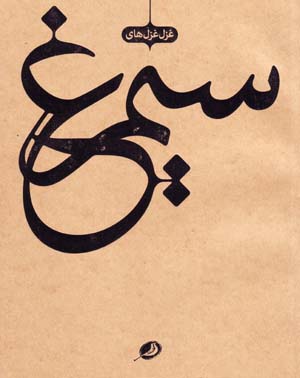 غزل غزل‌های
سیمرغ